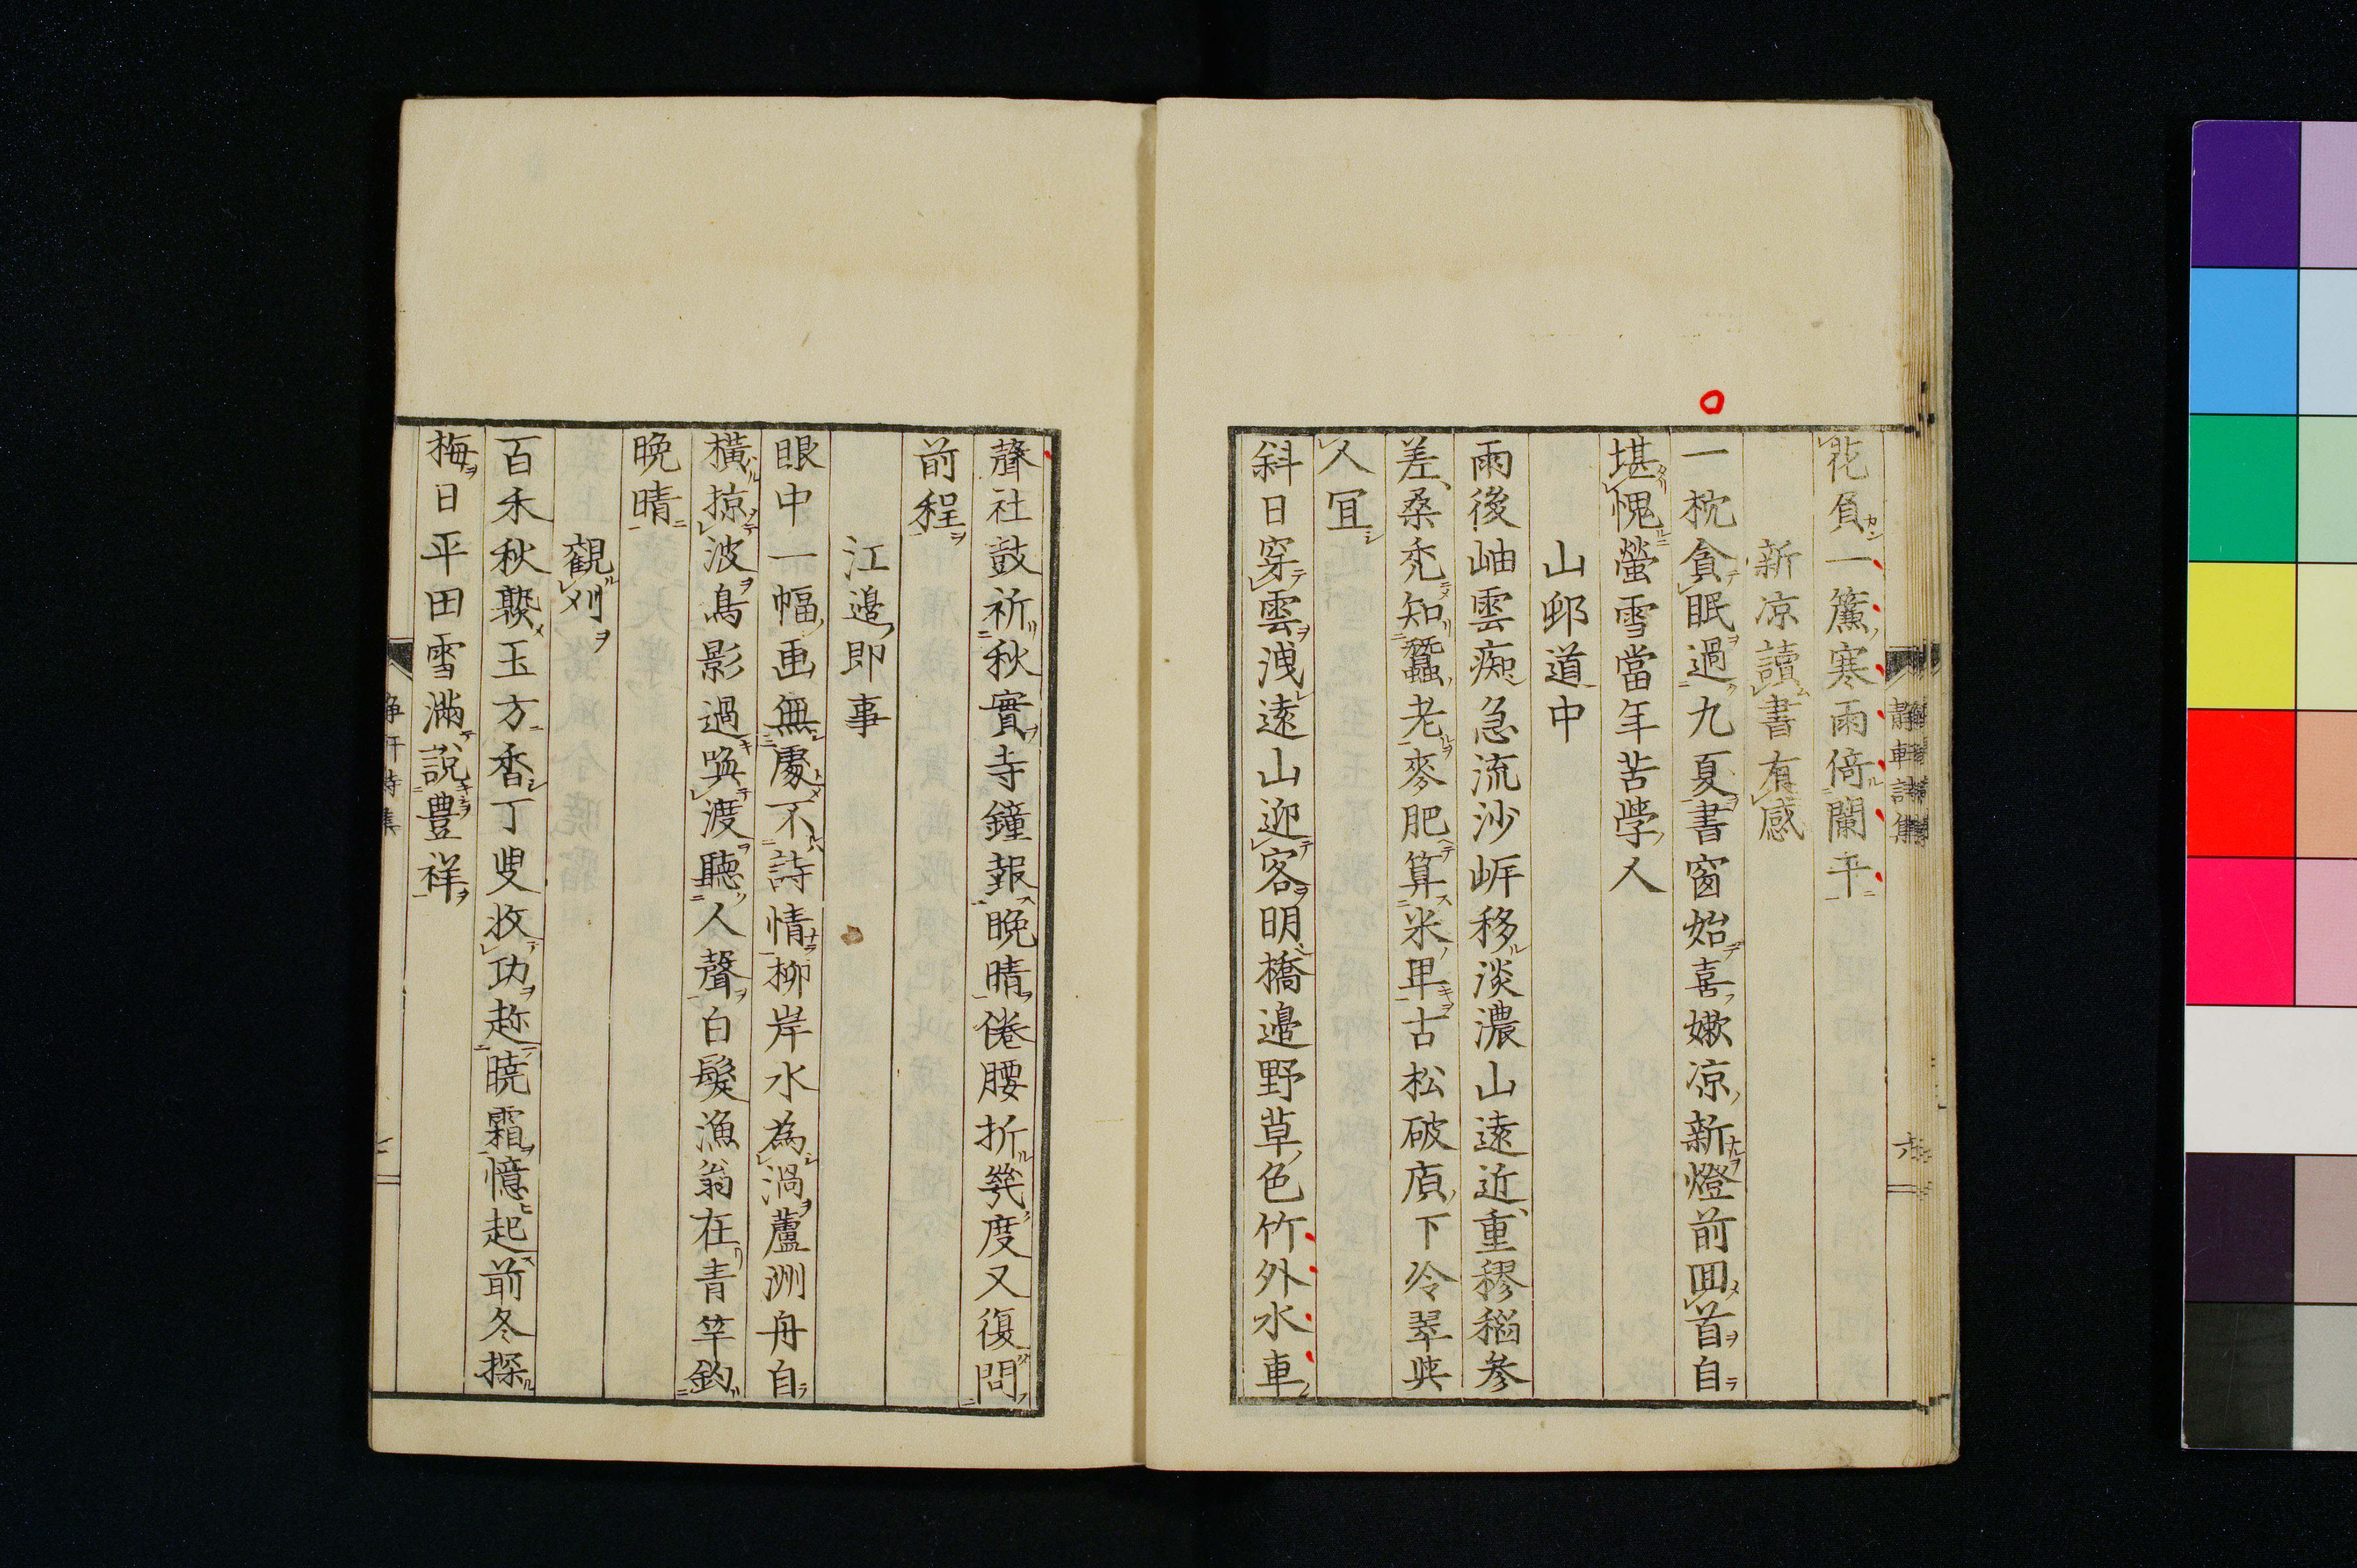 花負一簾寒雨倚闌干
新凉讀書有感
一枕貪眠過九夏書窗始喜嫩凉新燈前囬首自
堪愧螢雪當年苦學人
山邨道中
雨後岫雲痴急流沙岸移淡濃山遠近重穋稻参
差桑禿知蠶老麥肥算米卑古松破廎下冷翠與
人宜
斜日穿雲洩遠山迎客明橋邉野草色竹外水車
聲社鼓祈秋實寺鐘報晩晴倦腰折幾度又復問
前程
江邉即事
眼中一幅画無處不詩情柳岸水為渦蘆洲舟自
橫掠波鳥影過喚渡聽人聲白髮漁翁在青竿釣
晩晴
觀刈
百禾秋聚玉方香丁叟收功趂曉霜憶起前冬探
梅日平田雪滿說豊祥